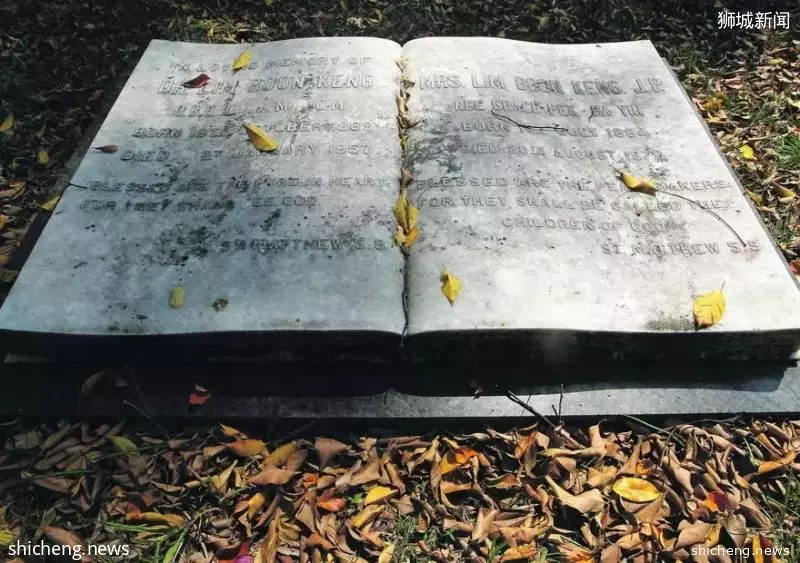 狮城新闻
IN LOVING MEMORY OF
DR. LIM BOON KENG
O.B.E. L.L.D. M.B. C.M.
BORN 18TH OCTOBER 1869
DIED 1ST JANUARY 1957
BLESSED ARE THE PURE IN HEART
FOR THEY SHALL SEE GOD
ST. MATTHEW 5.8.
MRS. LIM BOON KENG J.P.
NEE GRACE PEK HA YIN
BORN JULY 1884
DIED AUGUST
BLESSED ARE THE PEACEMAKERS
FOR THEY SHALL BE CALLED THE
CHILDREN OF GOD
ST. MATTHEW 5.9.
shicheng.news
shicheng.news